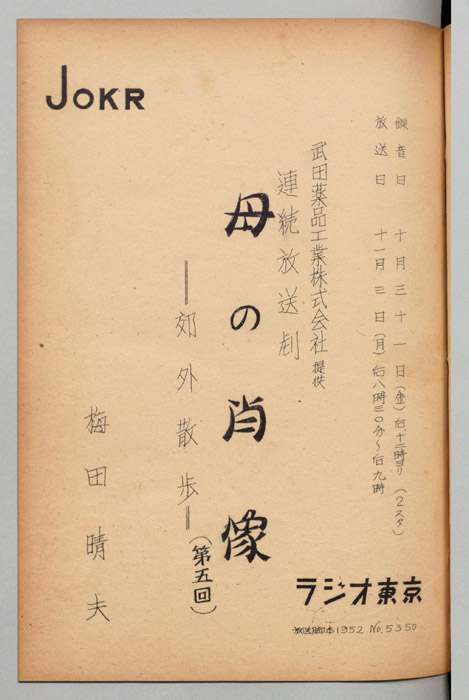 JOKR
録音日 十月三十一日(金)后、十二時ヨリ (2スタ)
放送日 十一月三日(月)后八時三〇分〜后九時
武田薬品工業株式会社 提供
連続放送劇
母の肖像
——郊外散歩——
(第五回)
梅田晴夫
ラジオ東京
放送脚本1952 No.5350